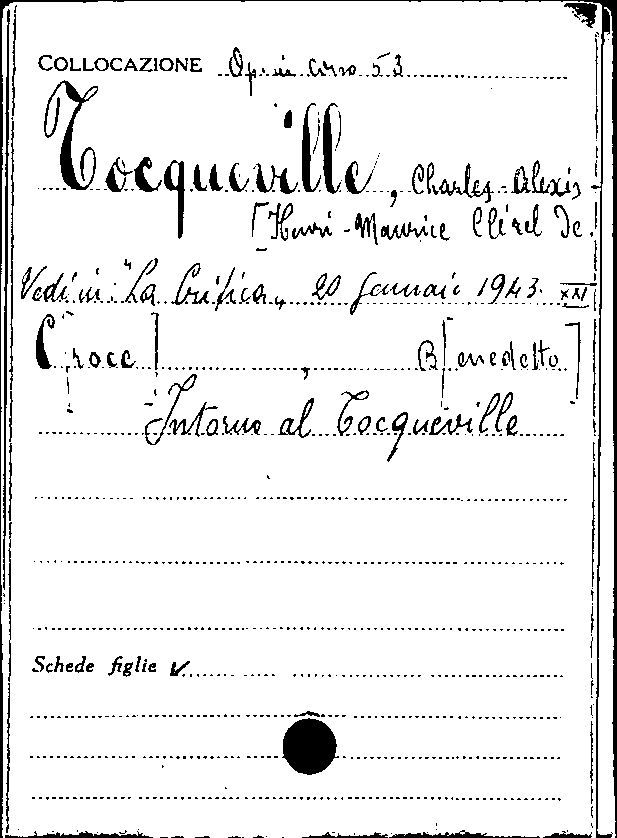 COLLOCAZIONE Op. in corso 53
Tocqueville, Charles-Alexis-
[Henri-Maurice Clérel de.
Vedi in: "La Critica" 20 gennaio 1943. XXI
C[roce] , B[enedetto]
Intorno al Tocqueville
Schede figlie ✓